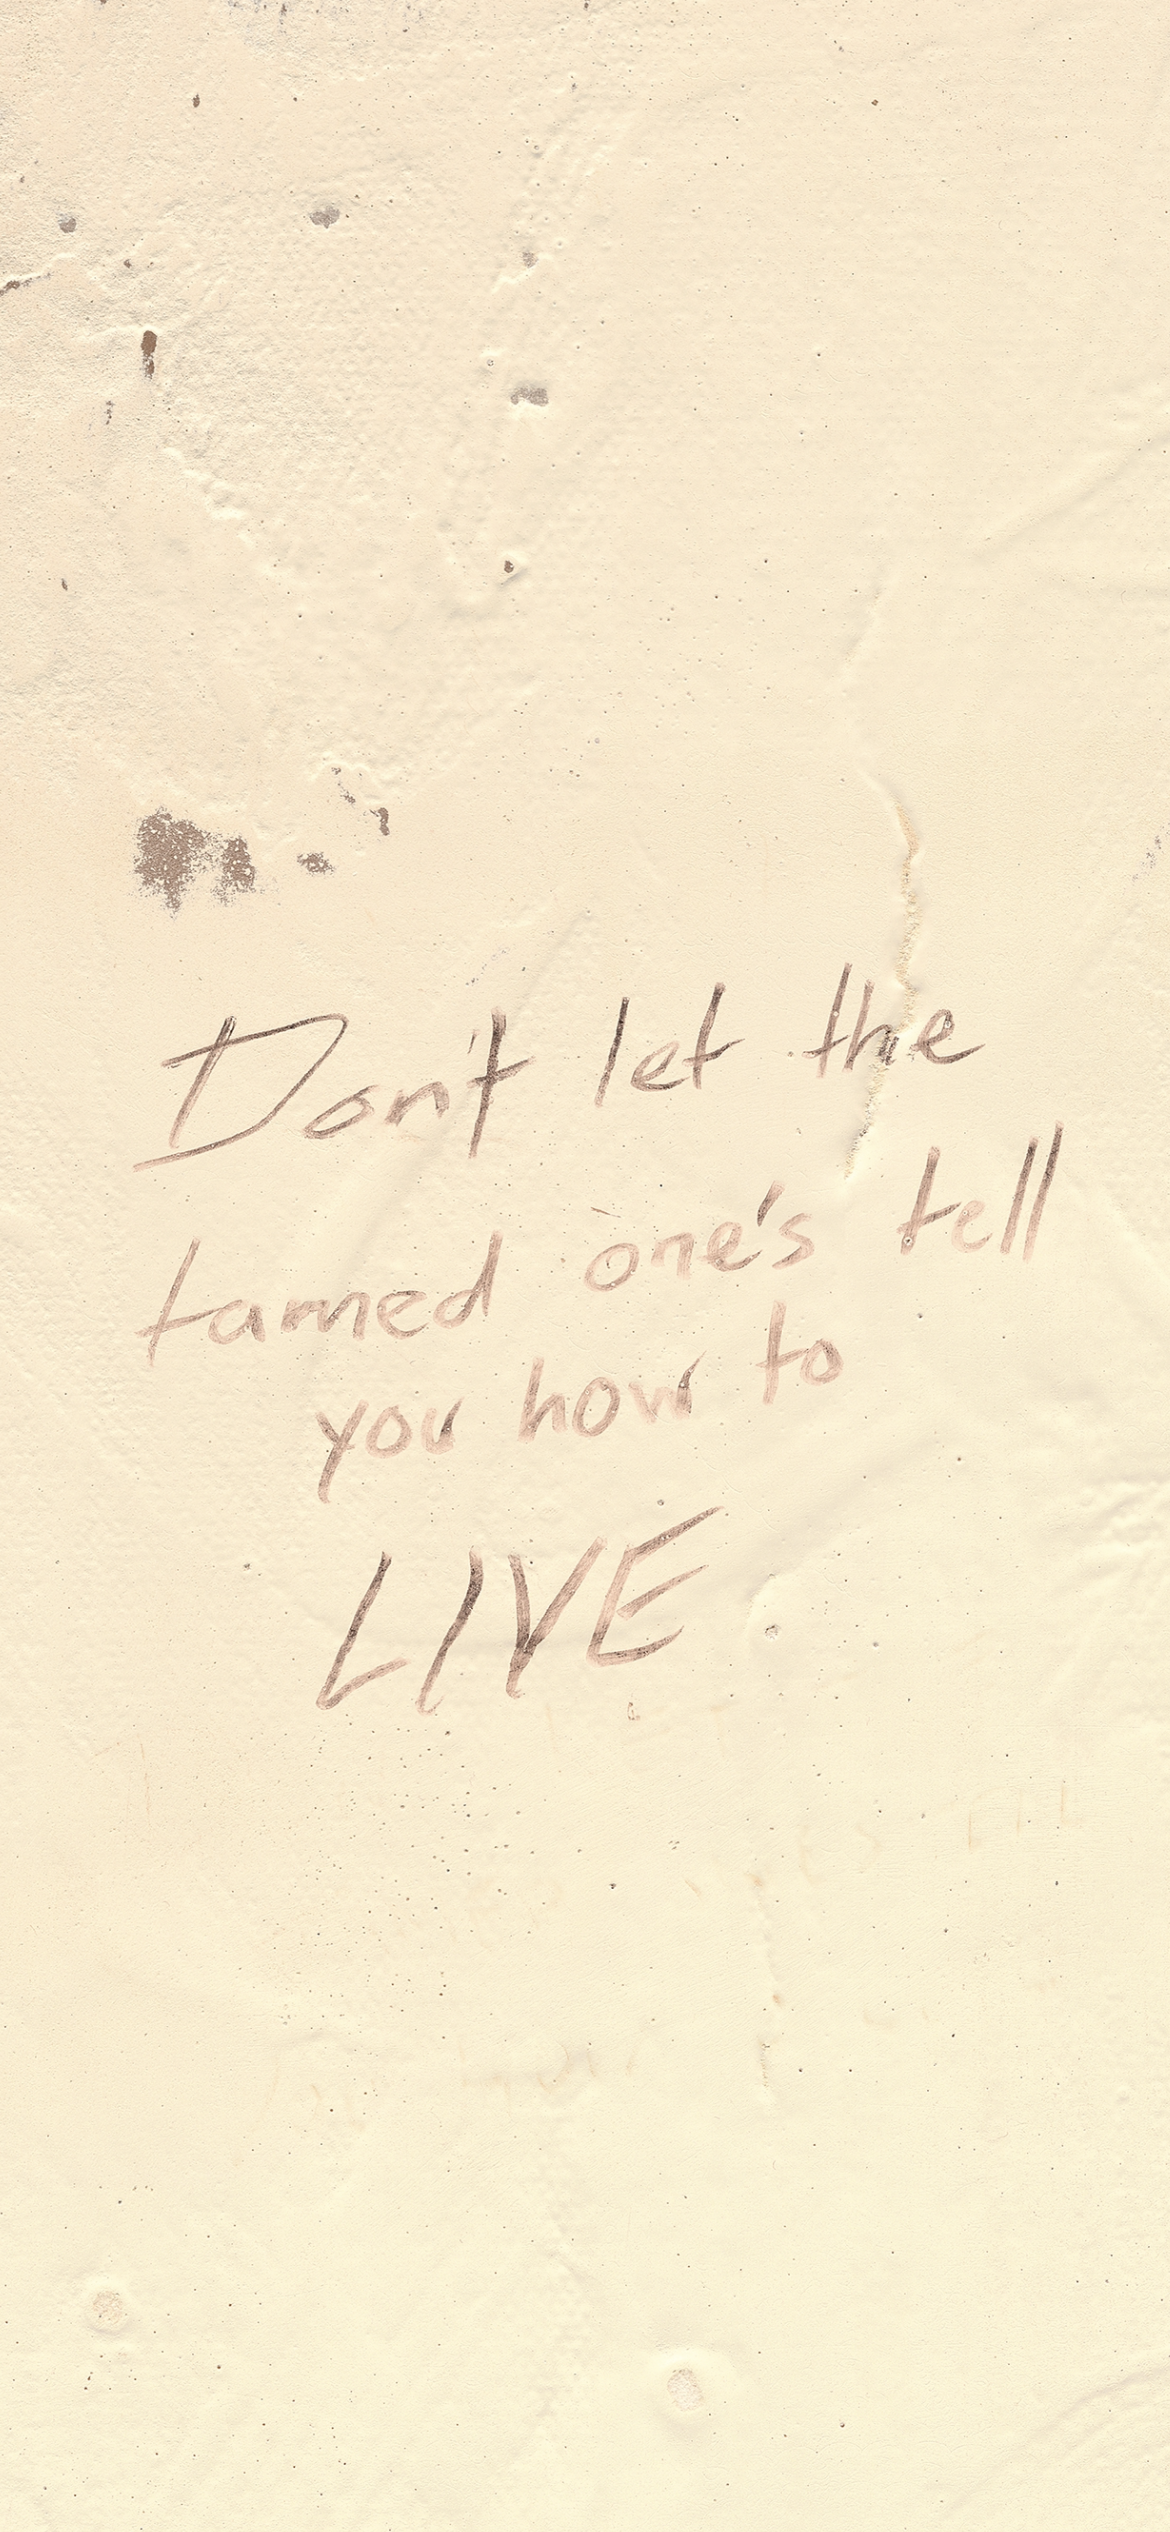 Don't let the
tamed one's tell
you how to
LIVE